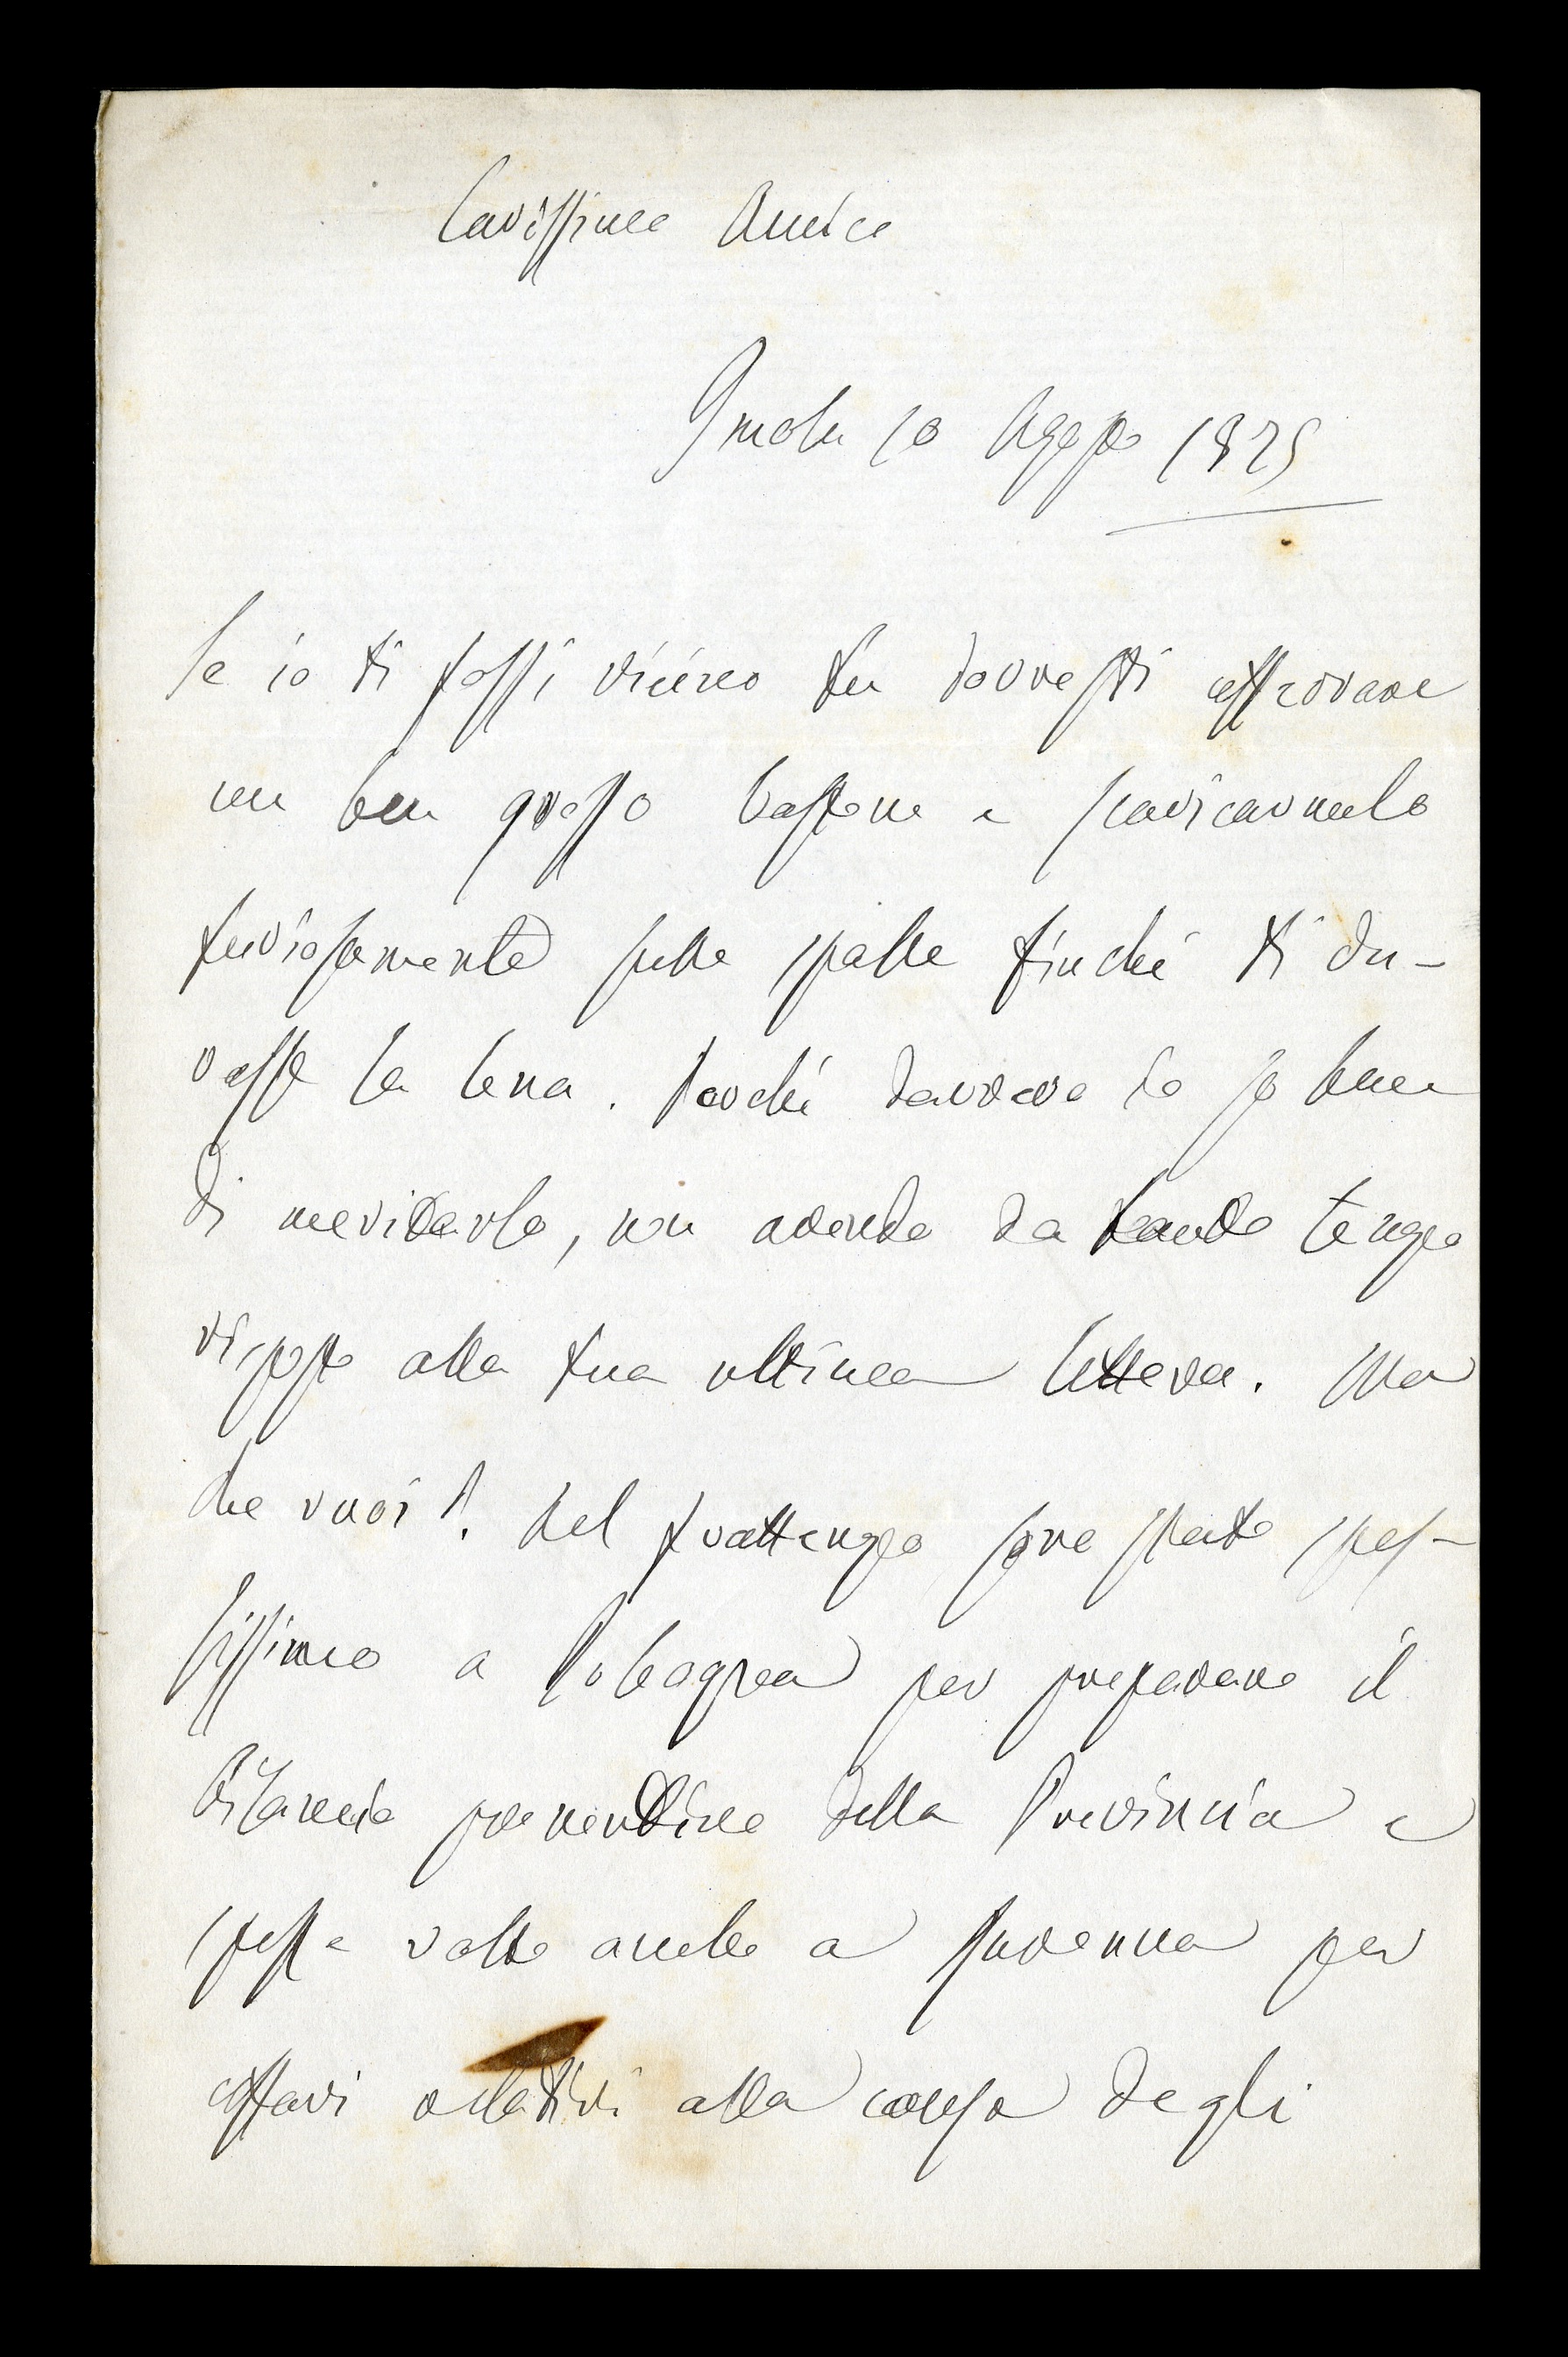 Carissimo Amico
Imola 10 Agosto 1875
Se io ti fossi vicino tu dovresti afferrare
un ben grosso bastone e scaricarmelo
furiosamente sulle spalle finché ti du-
rasse la lena. Perché davvero io so bene
di meritarlo, non avendo da tanto tempo
risposto alla tua ultima lettera. Ma
che vuoi! Nel frattempo sono stato spes-
sissimo a Bologna per preparare il
bilancio preventivo della Provincia e
spesse volte anche a Ravenna per
affari relativi alla causa degli